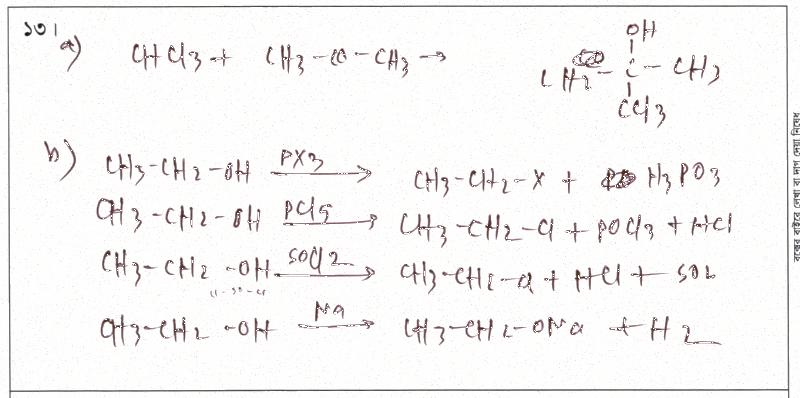 ১৩।
a) CHCl3 + CH3-CO-CH3 →
OH
CH3 - C - CH3
CCl3
b) CH3-CH2-OH PX3 → CH3-CH2-X + H3PO3
CH3-CH2-OH PCl5 → CH3-CH2-Cl + POCl3 + HCl
CH3-CH2-OH SOCl2 → CH3-CH2-Cl + HCl + SO2
CH3-CH2-OH Na → CH3-CH2-ONa + H2
বক্সের বাইরে লেখা বা দাগ দেয়া নিষেধ